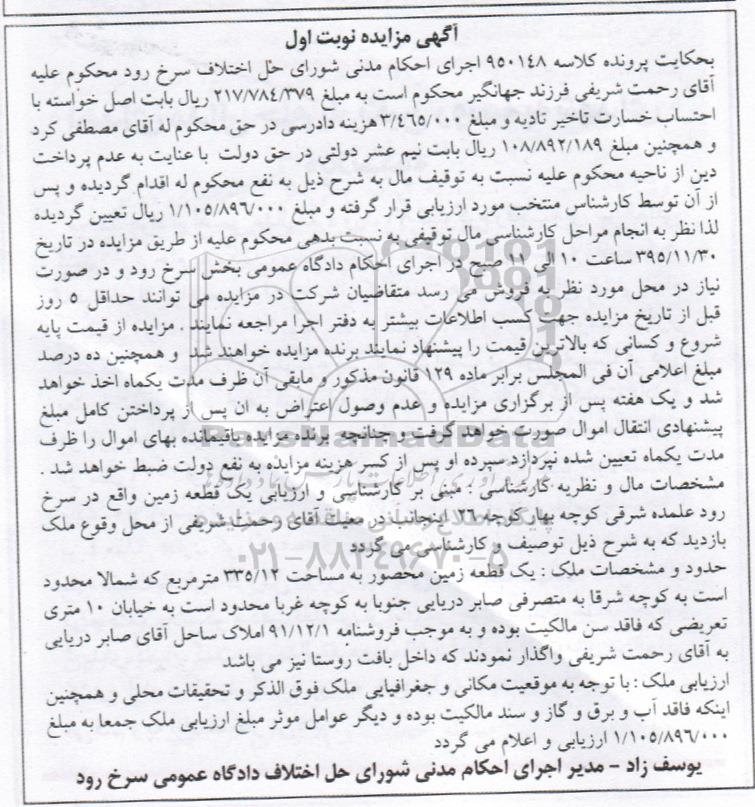 آگهی مزایده نوبت اول
بحکایت پرونده کلاسه ۹۵۰۱۴۸ اجرای احکام مدنی شورای حل اختلاف سرخ رود محکوم علیه
آقای رحمت شریفی فرزند جهانگیر محکوم است به مبلغ ۲۱۷/۷۸۴/۳۷۹ ریال بابت اصل خواسته با
احتساب خسارت تاخیر تادیه و مبلغ ۳/۴۶۵/۰۰۰ هزینه دادرسی در حق محکوم له آقای مصطفی کرد
و همچنین مبلغ ۱۰۸/۸۹۲/۱۸۹ ریال بابت نیم عشر دولتی در حق دولت با عنایت به عدم پرداخت
دین از ناحیه محکوم علیه نسبت به توقیف مال به شرح ذیل به نفع محکوم له اقدام گردیده و پس
از آن توسط کارشناس منتخب مورد ارزیابی قرار گرفته و مبلغ ۱/۱۰۵/۸۹۶/۰۰۰ ریال تعیین گردیده
لذا نظر به انجام مراحل کارشناسی مال توقیفی به نسبت بدهی محکوم علیه از طریق مزایده در تاریخ
۳۹۵/۱۱/۳۰ ساعت ۱۰ الی ۱۱ صبح در اجرای احکام دادگاه عمومی بخش سرخ رود و در صورت
نیاز در محل مورد نظر به فروش می رسد متقاضیان شرکت در مزایده می توانند حداقل ۵ روز
قبل از تاریخ مزایده جهت کسب اطلاعات بیشتر به دفتر اجرا مراجعه نمایند . مزایده از قیمت پایه
شروع و کسانی که بالاترین قیمت را پیشنهاد نمایند برنده مزایده خواهند شد و همچنین ده درصد
مبلغ اعلامی آن فی المجلس برابر ماده ۱۲۹ قانون مذکور و مابقی آن ظرف مدت یکماه اخذ خواهد
شد و یک هفته پس از برگزاری مزایده و عدم وصول اعتراض به ان پس از پرداختن کامل مبلغ
پیشنهادی انتقال اموال صورت خواهد گرفت و چنانچه برنده مزایده باقیمانده بهای اموال را ظرف
مدت یکماه تعیین شده نپردازد سپرده او پس از کسر هزینه مزایده به نفع دولت ضبط خواهد شد .
مشخصات مال و نظریه کارشناسی : مبنی بر کارشناسی و ارزیابی یک قطعه زمین واقع در سرخ
رود علمده شرقی کوچه بهار کوچه ۲۶ اینجانب در معیت آقای رحمت شریفی از محل وقوع ملک
بازدید که به شرح ذیل توصیف و کارشناسی می گردد
۰۲۱-۸۸۳۴۹۶۷۰-۵
حدود و مشخصات ملک : یک قطعه زمین محصور به مساحت ۳۳۵/۱۲ مترمربع که شمالا محدود
است به کوچه شرقا به متصرفی صابر دریایی جنوبا به کوچه غربا محدود است به خیابان ۱۰ متری
تعریضی که فاقد سن مالکیت بوده و به موجب فروشنامه ۹۱/۱۲/۱ املاک ساحل آقای صابر دریایی
به آقای رحمت شریفی واگذار نمودند که داخل بافت روستا نیز می باشد
ارزیابی ملک : با توجه به موقعیت مکانی و جغرافیایی ملک فوق الذکر و تحقیقات محلی و همچنین
اینکه فاقد آب و برق و گاز و سند مالکیت بوده و دیگر عوامل موثر مبلغ ارزیابی ملک جمعا به مبلغ
۱/۱۰۵/۸۹۶/۰۰۰ ارزیابی و اعلام می گردد
یوسف زاد - مدیر اجرای احکام مدنی شورای حل اختلاف دادگاه عمومی سرخ رود